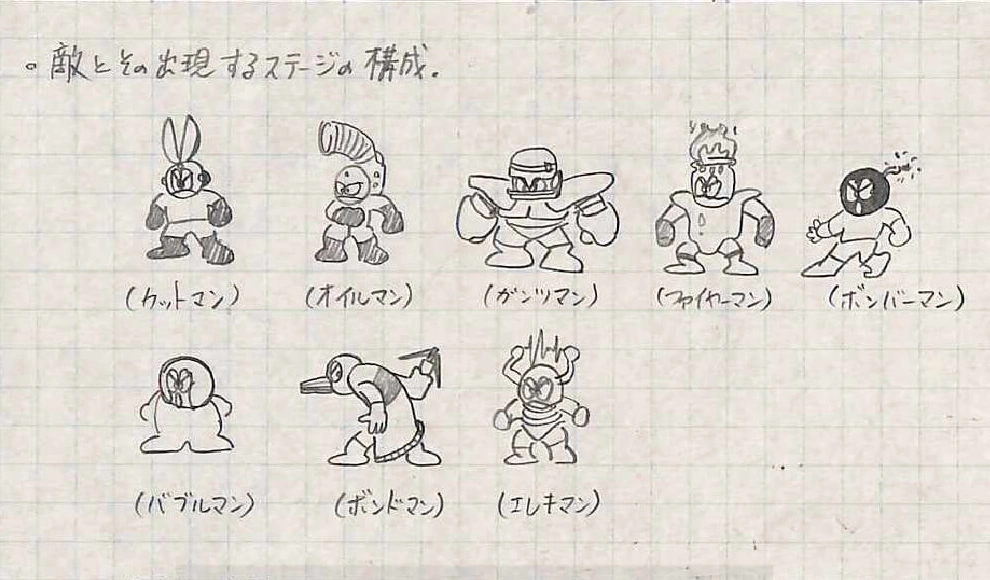 。敵とその出現するステージの構成.
(カットマン) (オイルマン) (ガンツマン) (ファイヤーマン) (ボンバーマン)
(バブルマン) (ボンドマン) (エレキマン)